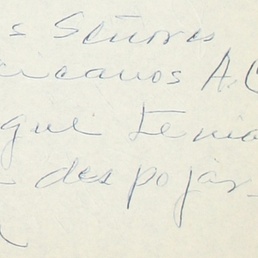 s Señores
ricanos A.C
que tenía
despojar